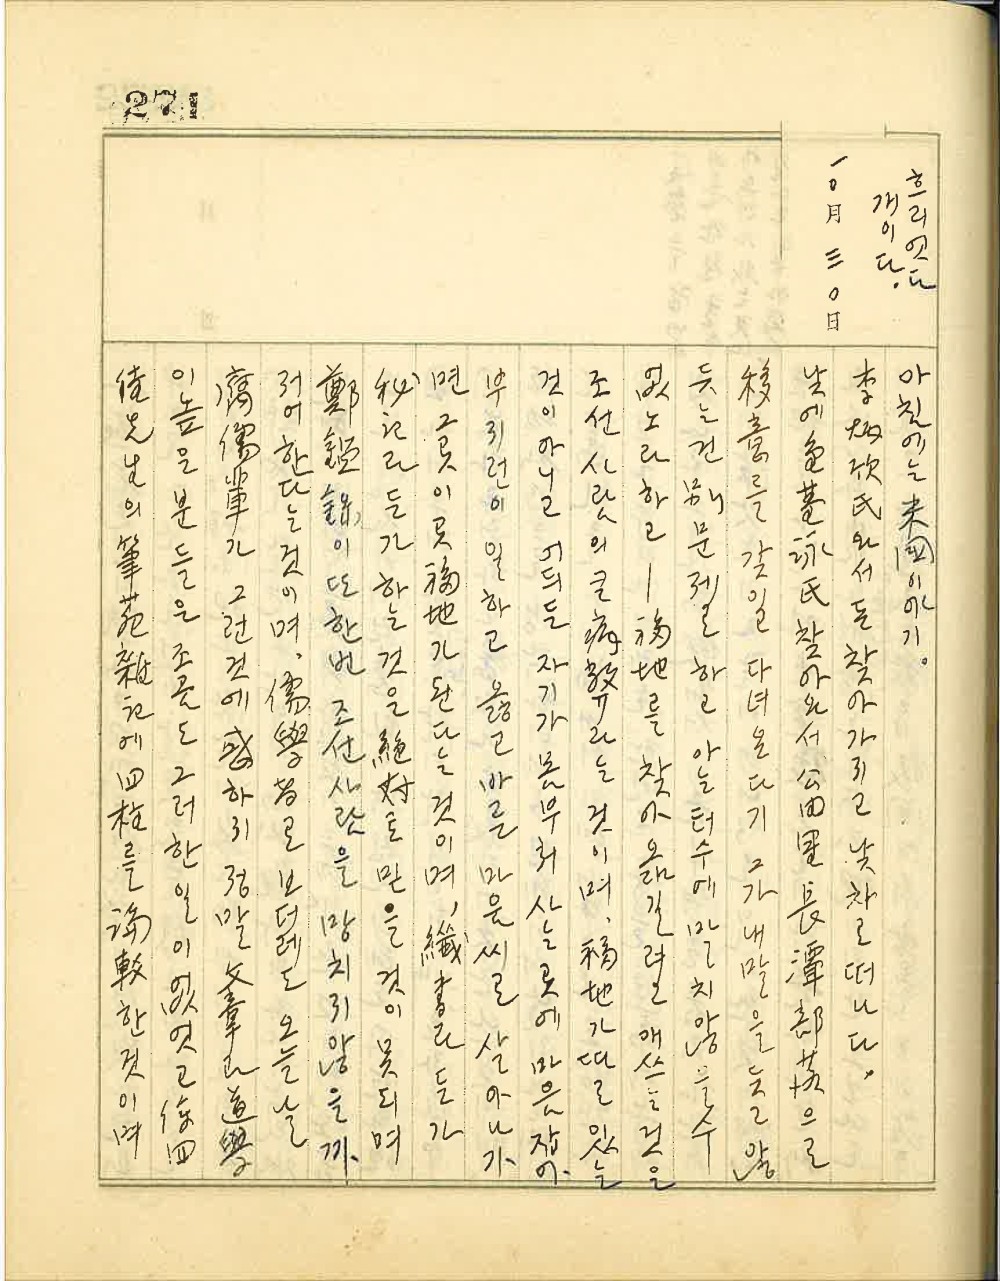 271
흐리엿다
개이다.
一〇月 三〇日
아침에는 米國이야기.
李炳欣氏와서 돈 찾아가지고 낮차로 떠나다.
낮에 金基詠氏 찾아와서 公田里 長潭部落으로
移舍를 갖일 다녀온다기 그가 내말을 듯고 않
듯는건 別 문제로 하고 아는터수에 말치않을수
없노라하고 ― 福地를 찾아 옮길려고 애쓰는것은
조선사람의 큰 病弊라는 것이며, 福地가 따로 있는
것이 아니고 어듸든 자기가 몸부처 사는 곳에 마음잡아
부지런이 일하고 옳고 바른 마음씨로 살아나가
면 그곳이 곳 福地가 된다는 것이며, 讖書라 든가
秘記라 든가 하는 것은 絶対로 믿을 것이 못되며
鄭鑑錄이 또 한번 조선사람을 망치지 않을까
저어한다는 것이며, 儒學者로 보더레도 오늘날
腐儒輩가 그런것에 惑하지 정말 文章과 道學
이 높은 분들은 조곰도 그러한 일이 없엇고 徐四
佳先生의 筆苑雜記에 四柱를 論較한 것이며